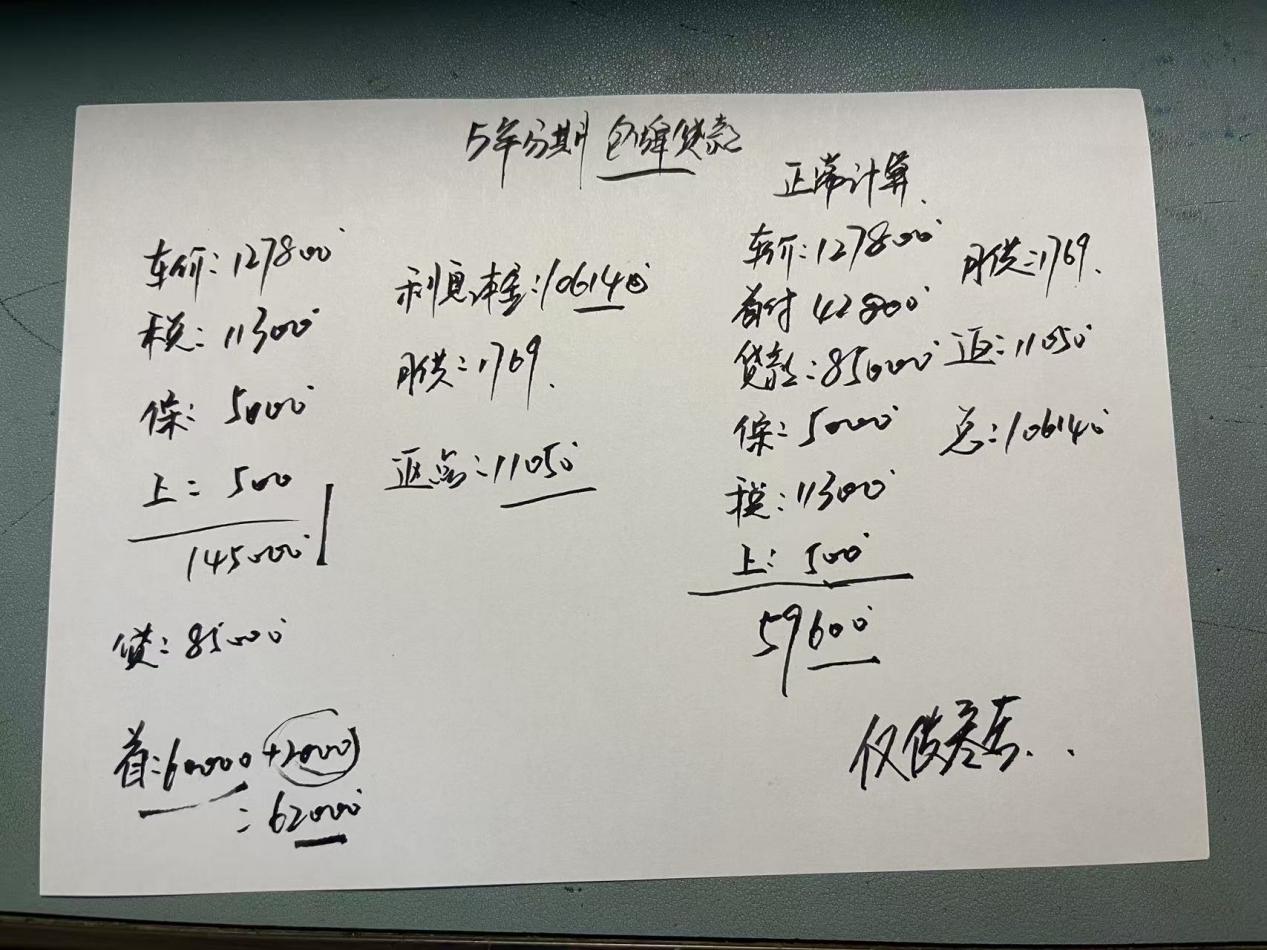 5年分期 包牌贷款
车价:127800
税:11300
保:5000
上:500
145000
贷:85000
首:60000+2000
=62000
利息本金:106140
月供:1769.
返点:11050
正常计算.
车价:127800
首付42800
贷款:85000
保:5000
税:11300
上:500
59600
月供:1769.
返:11050
总:106140
仅供参考...